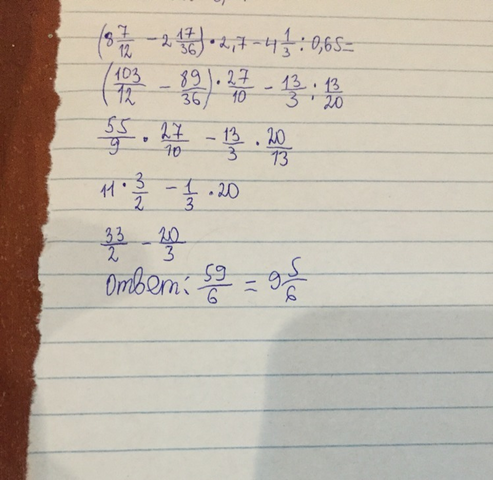 (8 7/12 - 2 17/36) · 2,7 - 4 1/3 : 0,65 =
(103/12 - 89/36) · 27/10 - 13/3 : 13/20
55/9 · 27/10 - 13/3 · 20/13
11 · 3/2 - 1/3 · 20
33/2 - 20/3
Ответ: 59/6 = 9 5/6